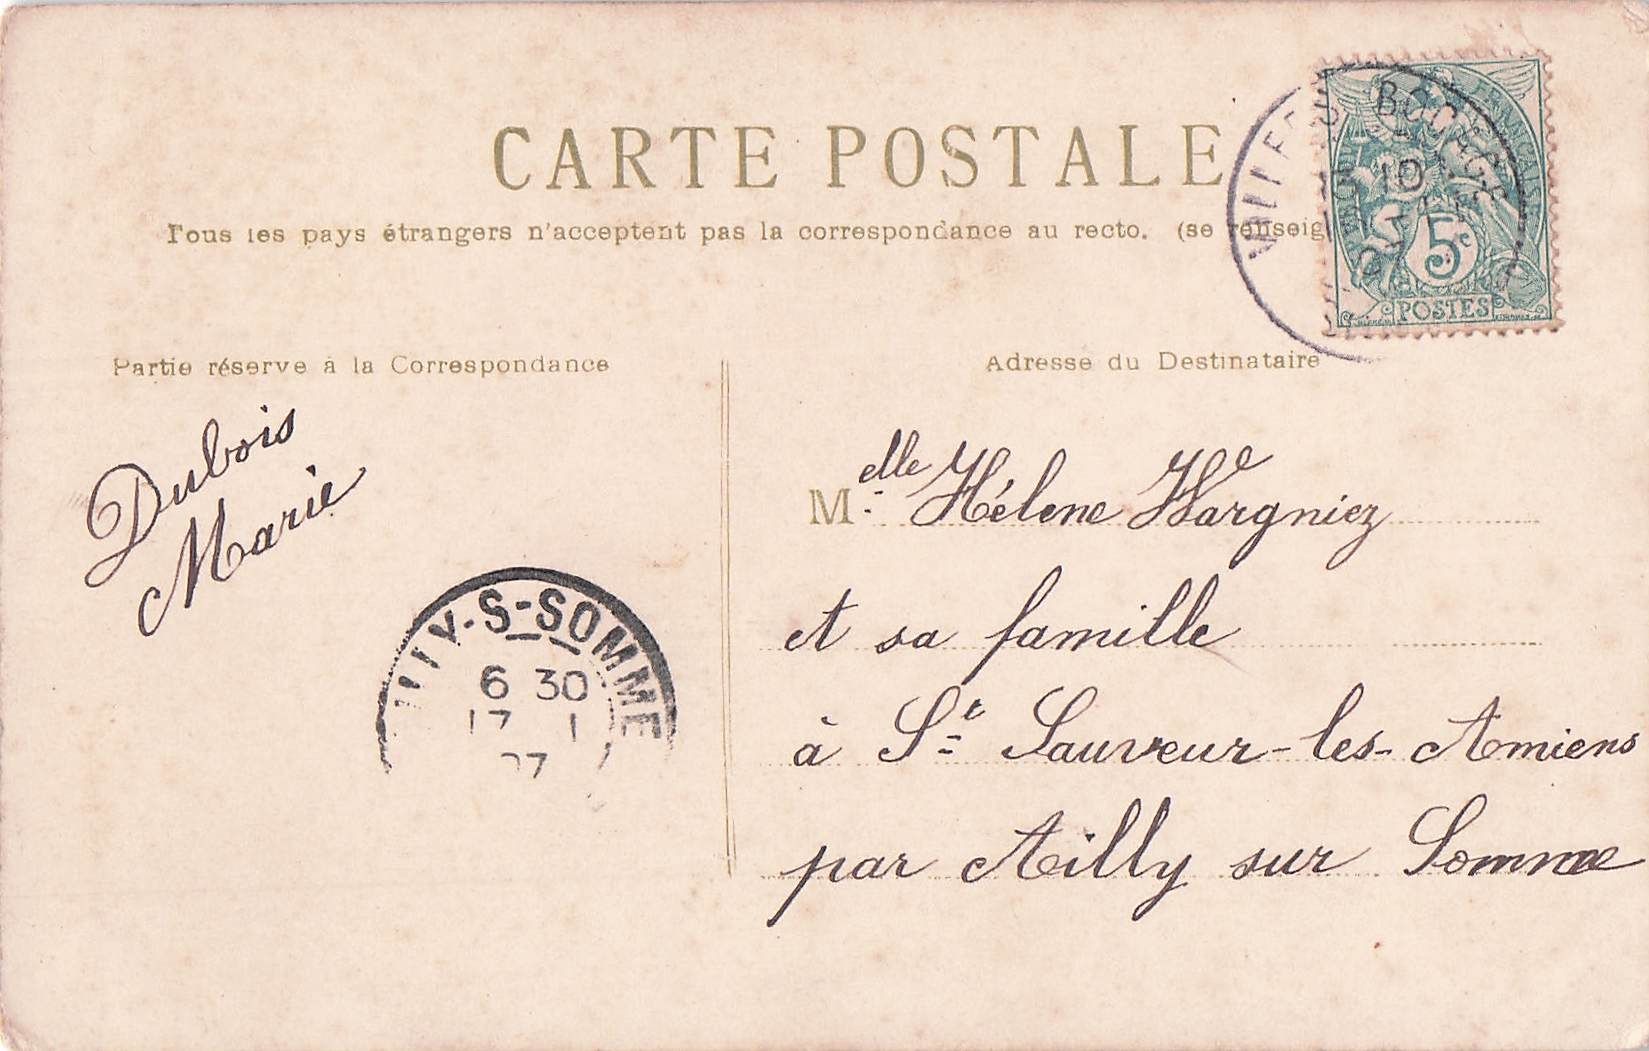 CARTE POSTALE
Tous les pays étrangers n'acceptent pas la correspondance au recto. (se renseig
BOCAGE
10
5c
POSTES
Partie réserve à la Correspondance
Adresse du Destinataire
Dubois
Marie
Melle Hélène Wargniez
et sa famille
à St Sauveur-les-Amiens
par Ailly sur Somme
ILLY-S-SOMME
6 30
17 1
07